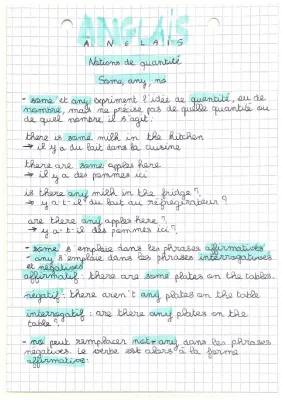 ANGLAIS
ANGLAIS
Notions de quantité
Some, any, no
- some et any expriment l'idée de quantité, ou de
nombre, mais ne précise pas de quelle quantité ou
de quel nombre il s'agit.
there is some milk in the kitchen
→ il y a du lait dans la cuisine
there are some apples here
→ il y a des pommes ici
is there any milk in the fridge?
→ y a-t-il du lait au réfrigérateur?
are there any apples here?
→ y a-t-il des pommes ici?
- some s'emploie dans les phrases affirmatives
- any s'emploie dans les phrases interrogatives
et négatives
affirmatif: there are some plates on the tables.
négatif: there aren't any plates on the table
interrogatif: are there any plates on the
table?
- no peut remplacer not-any dans les phrases
négatives. Le verbe est alors à la forme
affirmative: